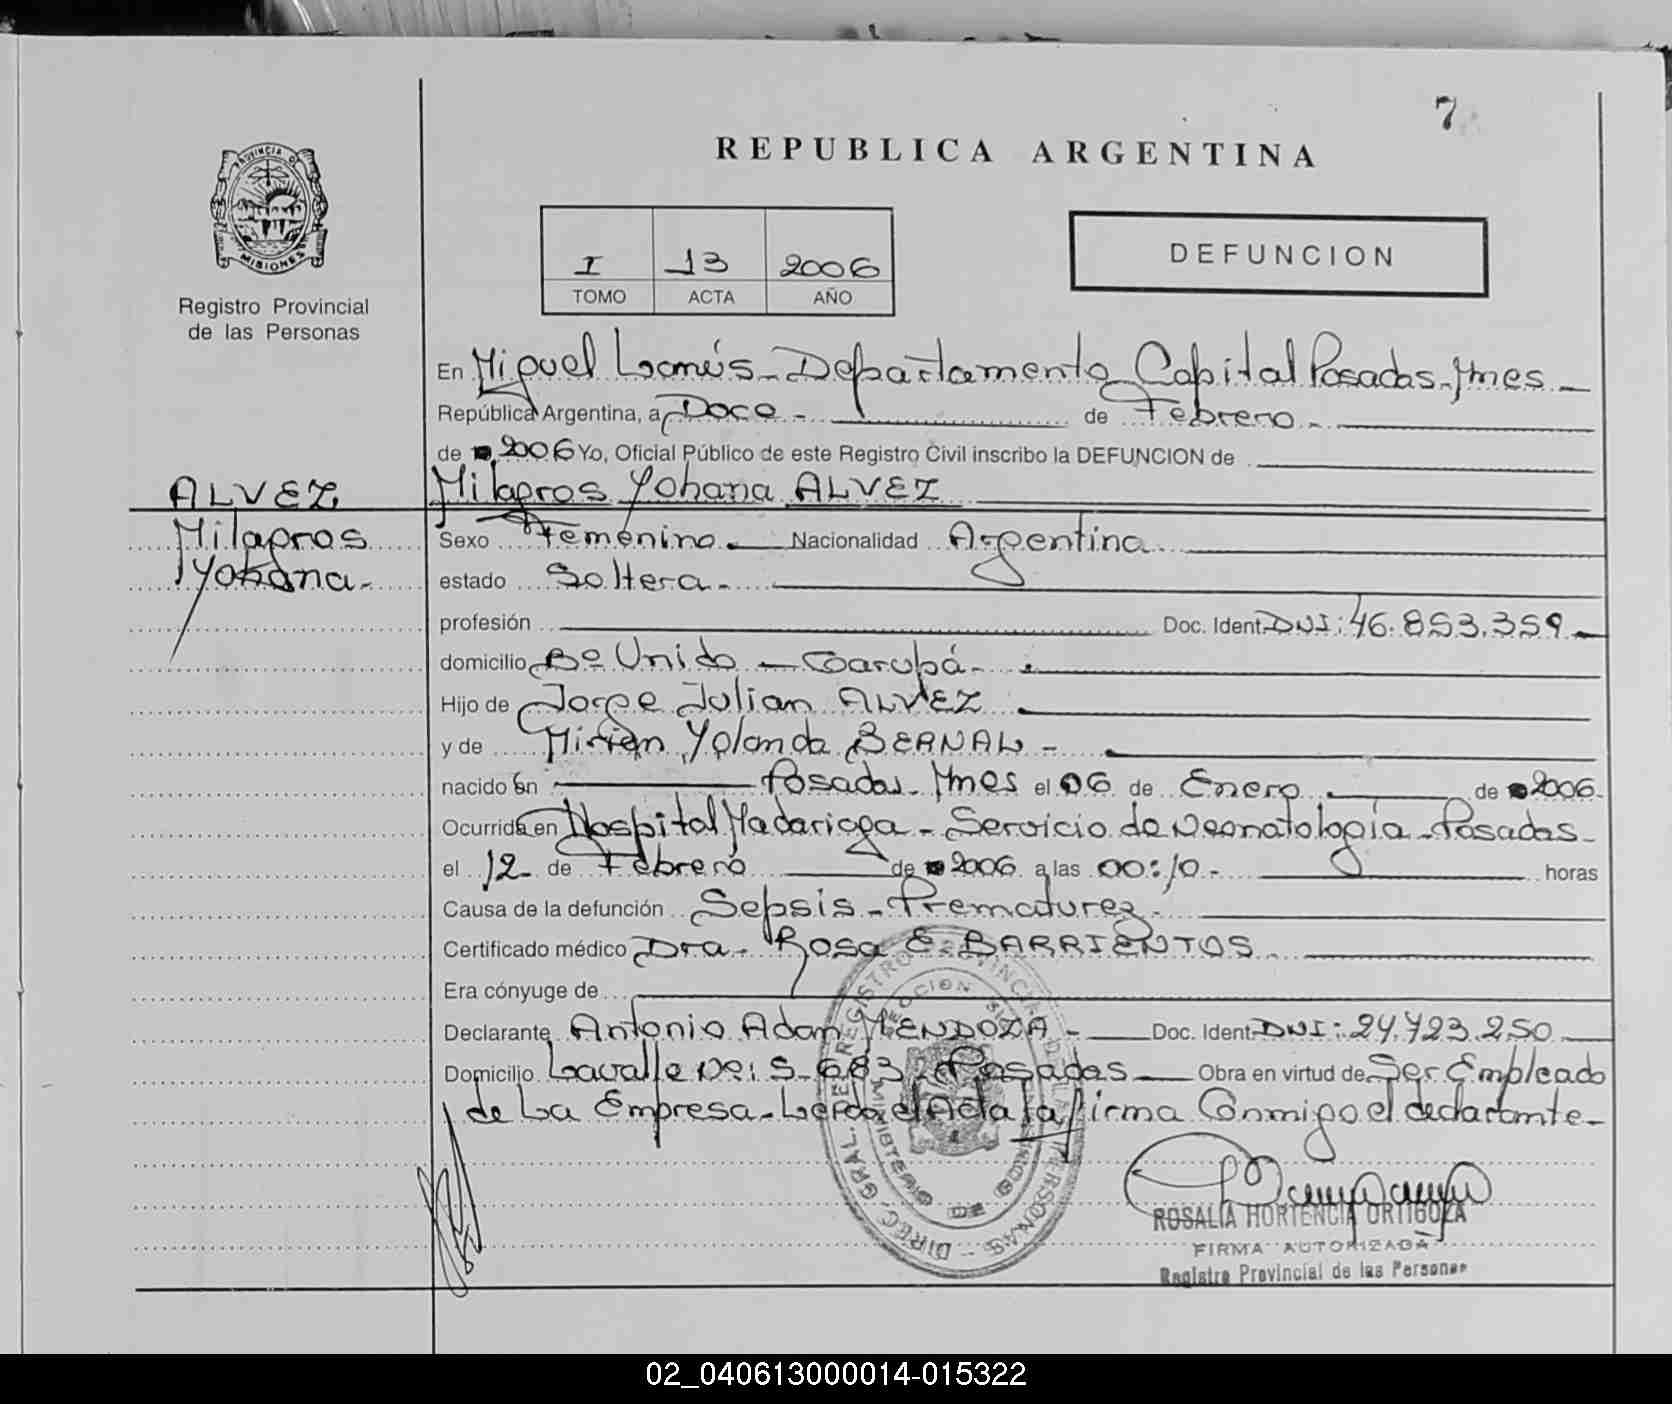 7
REPUBLICA ARGENTINA
PROVINCIA DE
MISIONES
Registro Provincial
de las Personas
I 13 2006
TOMO ACTA AÑO
DEFUNCION
En Miguel Lanús - Departamento Capital Posadas - Mnes -
República Argentina, a Doce - de Febrero -
de 2006 Yo, Oficial Público de este Registro Civil inscribo la DEFUNCION de
ALVEZ Milagros Yohana ALVEZ
Milagros Sexo Femenino. Nacionalidad Argentina
Yohana - estado Soltera -
profesión Doc. Ident. DNI: 46.853.359
domicilio Bº Unido - Garupá -
Hijo de Jorge Julian ALVEZ
y de Mirian Yolanda BERNAL -
nacido en Posadas - Mnes el 06 de Enero de 2006
Ocurrida en Hospital Madariaga - Servicio de Neonatología - Posadas -
el 12 de Febrero de 2006 a las 00:10 - horas
Causa de la defunción Sepsis - Prematurez -
Certificado médico Dra. Rosa E. BARRIENTOS
Era cónyuge de
Declarante Antonio Adan MENDOZA - Doc. Ident. DNI: 24.723.250
Domicilio Lavalle Nº: S-683 - Posadas Obra en virtud de Ser Empleado
de La Empresa - Leída el Acta la firma Conmigo el declarante -
DIREC. GRAL. DE REGISTRO PROVINCIAL DE LAS PERSONAS
MINISTERIO DE
ROSALIA HORTENCIA ORTIGOZA
FIRMA AUTORIZADA
Registro Provincial de las Personas
02_040613000014-015322